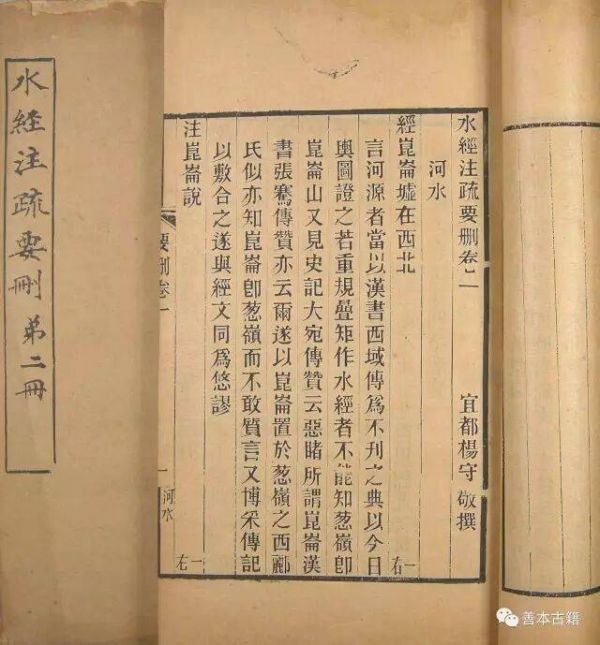 水經注疏要刪卷一
宜都楊守敬撰
河水
經崑崙墟在西北
一右
言河源者當以漢書西域傳爲不刊之典以今日
輿圖證之若重規疊矩作水經者不能知葱嶺卽
崑崙山又見史記大宛傳贊云惡睹所謂崑崙漢
書張騫傳贊亦云爾遂以崑崙置於葱嶺之西酈
氏似亦知崑崙卽葱嶺而不敢質言又博采傳記
以敷合之遂與經文同爲悠謬
注崑崙說
一左
要刪卷一
一
河水
水経注疏要刪 弟二冊
善本古籍